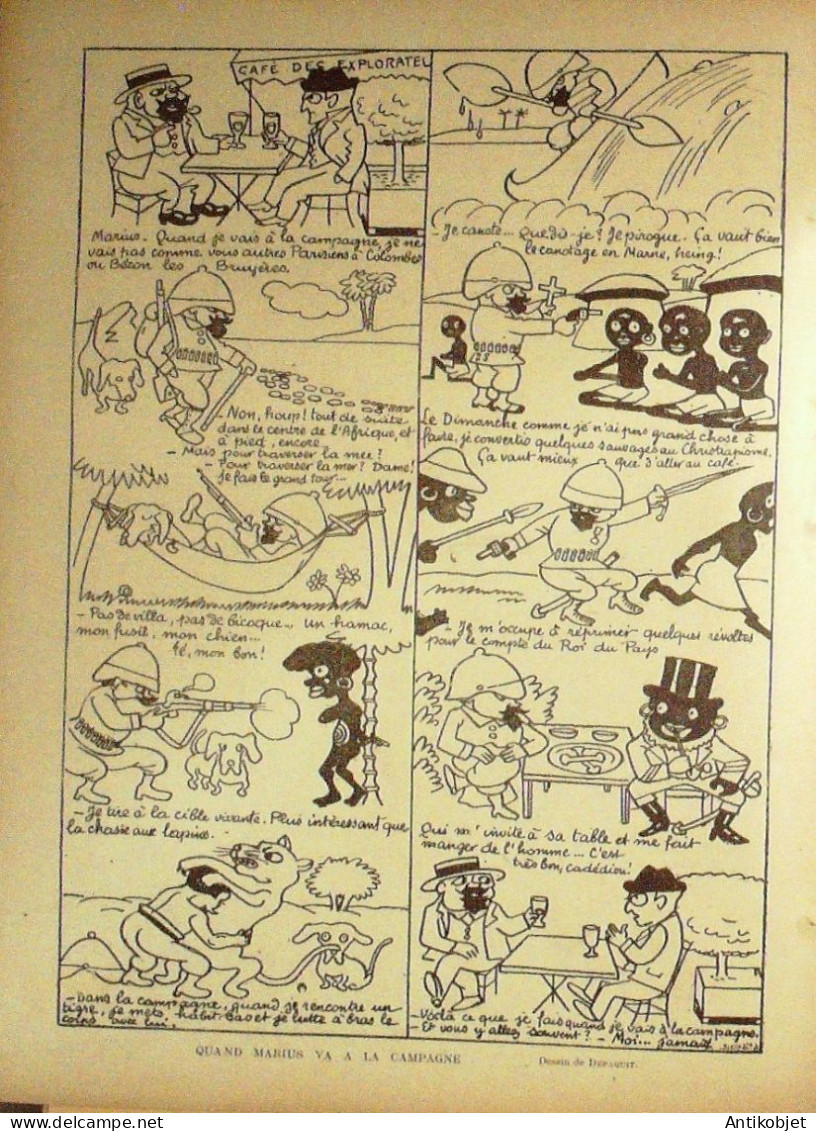 CAFÉ DES EXPLORATEU
Marius. Quand je vais à la campagne, je ne
vais pas comme vous autres Parisiens à Colombes
ou Bézon les Bruyères.
- Non, houp! tout de suite
dans le centre de l'Afrique, et
à pied, encore.
- Mais pour traverser la mer?
- Pour traverser la mer? Dame!
Je fais le grand tour...
- Pas de villa, pas de bicoque... un hamac,
mon fusil, mon chien...
té, mon bon!
- Je tire à la cible vivante. Plus intéressant que
la chasse aux lapins.
- Dans la campagne, quand je rencontre un
tigre, je mets habit bas et je lutte à bras le
corps avec lui.
- Je canote... Que dis-je? Je pirogue. Ça vaut bien
le canotage en Marne, heing!
Le Dimanche comme je n'ai pas grand chose à
faire, je convertis quelques sauvages au Christianisme.
Ça vaut mieux que d'aller au café.
- Je m'occupe à réprimer quelques révoltes
pour le compte du Roi du Pays
Qui m'invite à sa table et me fait
manger de l'homme... C'est
très bon, cadédiou!
- Voilà ce que je fais quand je vais à la campagne.
- Et vous y allez souvent? - Moi... jamais
QUAND MARIUS VA A LA CAMPAGNE
Dessin de DEPAQUIT.
Antikobjet